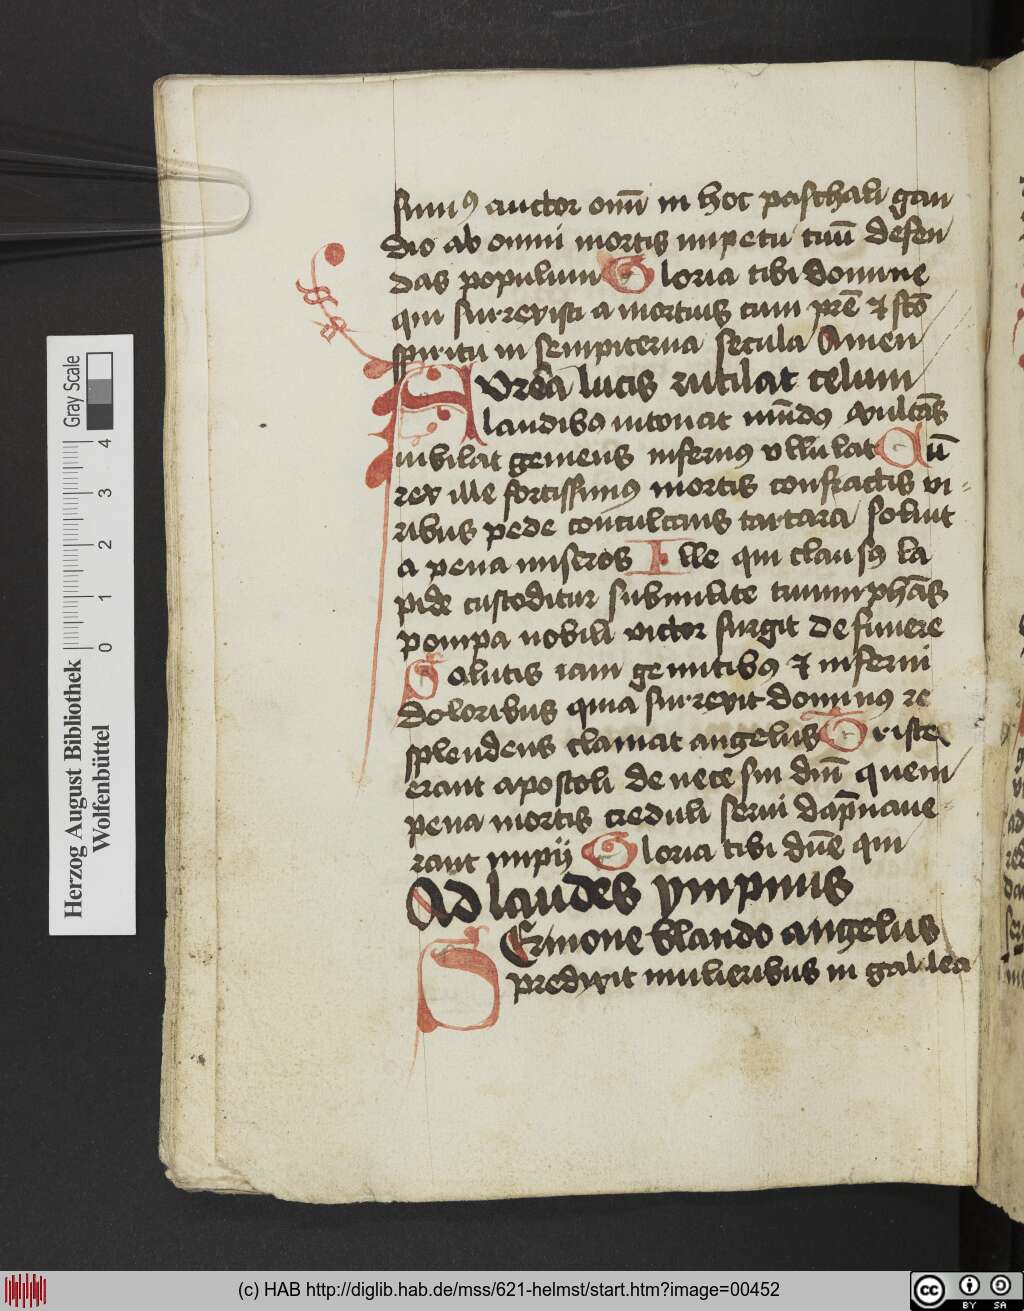 sum9 auctor om̄ in hoc paschali gau
dio ab omni mortis impetu tuū defen
das populum Gloria tibi domine
qui surrexisti a mortuis cum prē & scō
spiritu in sempiterna secula Amen
Avrea lucis rutilat celum
laudib9 intonat mūd9 exultās
iubilat gemens infern9 vllulat Cū
rex ille fortissim9 mortis confractis vi-
ribus pede conculcans tartara soluit
a pena miseros Ille qui claus9 la
pide custoditur sub milite triumphās
pompa nobili victor surgit de funere
Solutis iam gemitib9 & inferni
doloribus quia surrexit domin9 re
splendens clamat angelus Tristes
erant apostoli de nece sui dnī quem
pena mortis creduli serui dāpnaue
rant impij Gloria tibi dnē qui
Ad laudes ympnus
SErmone blando angelus
predixit mulieribus in galilea
Herzog August Bibliothek
Wolfenbüttel
0 1 2 3 4
Gray Scale
(c) HAB http://diglib.hab.de/mss/621-helmst/start.htm?image=00452
cc BY SA